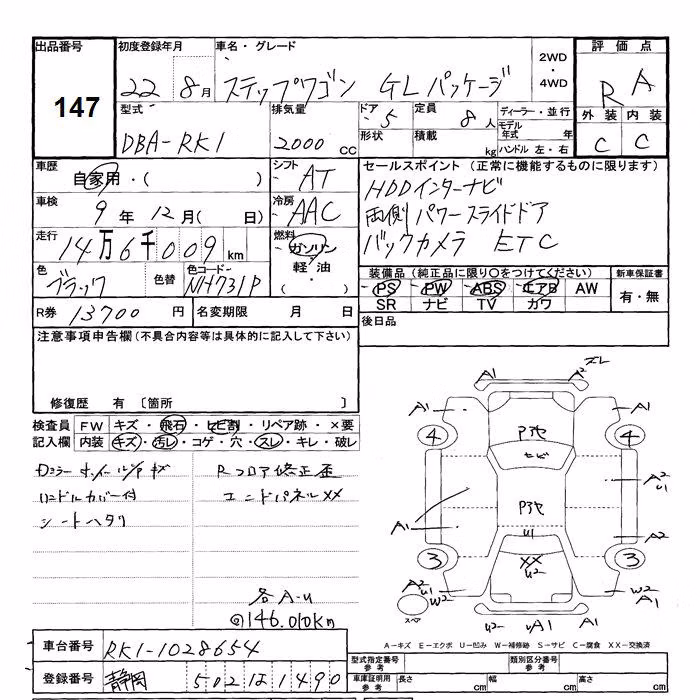 出品番号
147
初度登録年月
22 8月
車名・グレード
ステップワゴン GLパッケージ
2WD
・
4WD
評価点
R A
外装 内装
C C
型式
DBA-RK1
排気量
2000 CC
ドア
5
定員
8人
形状
積載
kg
ディーラー・並行
モデル年式 年
ハンドル 左・右
車歴
自家用・( )
シフト
AT
車検
9年12月( 日)
冷房
AAC
走行
14万6千009km
燃料
ガソリン
軽・油
・( )
色
ブラック
色替
色コード
NH731P
セールスポイント(正常に機能するものに限ります)
HDDインターナビ
両側パワースライドドア
バックカメラ ETC
装備品(純正品に限り○をつけてください)
PS PW ABS エアB AW
SR ナビ TV カワ
新車保証書
有・無
R券 13700円
名変期限 月 日
後日品
注意事項申告欄(不具合内容等は具体的に記入して下さい)
修復歴 有 〔箇所 〕
検査員記入欄
FW キズ・飛石・ヒビ割・リペア跡・×要
内装 キズ・汚レ・コゲ・穴・スレ・キレ・破レ
Rフロア修正歪
ハンドルカバー付
エンドパネルXX
シートヘタリ
各A-U
@146.010km
A1 A2 ズレ
A1 A1
4 4
P3ヤ
A2
U1
A1 A2
U1
3 3
XX
U2
A2
U1 W2
W2
A1
スペア
U2 UA1 A1
A=キズ E=エクボ U=凹み W=補修跡 S=サビ C=腐食 XX=交換済
車台番号 RK1-1028654
登録番号 静岡 502 は 1490
型式指定番号
参考
類別区分番号
参考
車庫証明用
参考
長さ cm
幅 cm
高さ cm